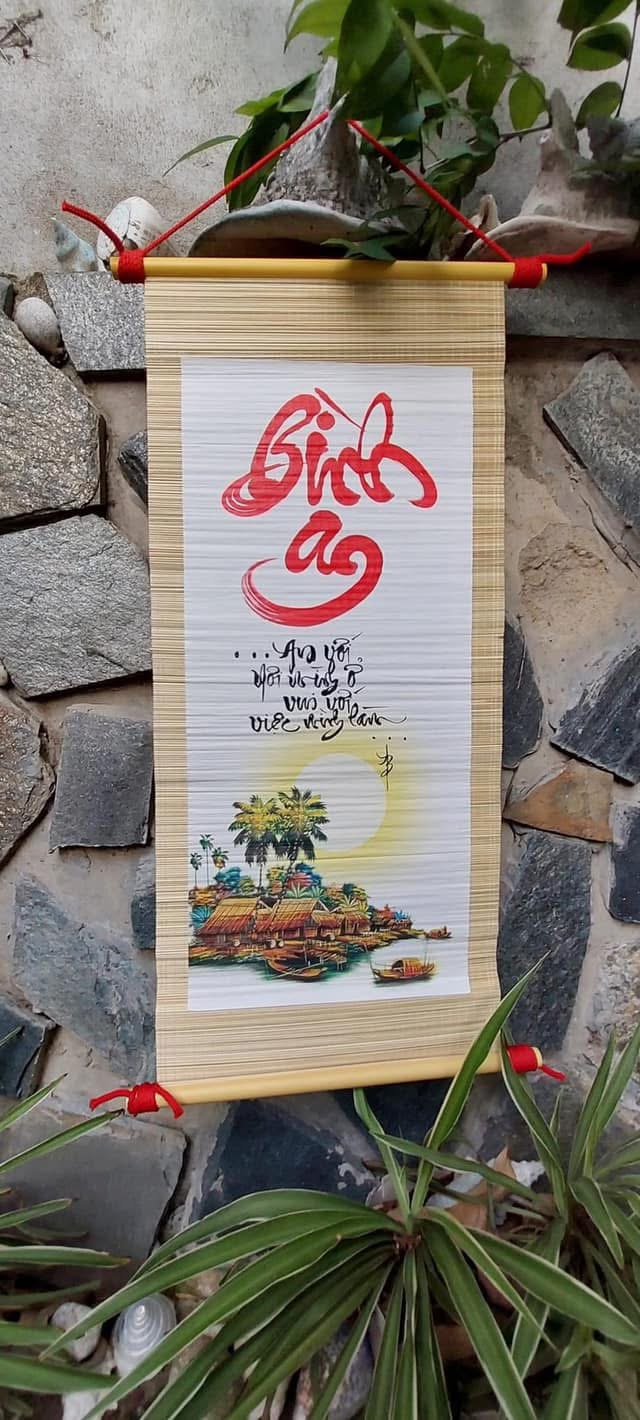 Bình
an
... An với
nơi mình ở
vui với
việc mình làm
...